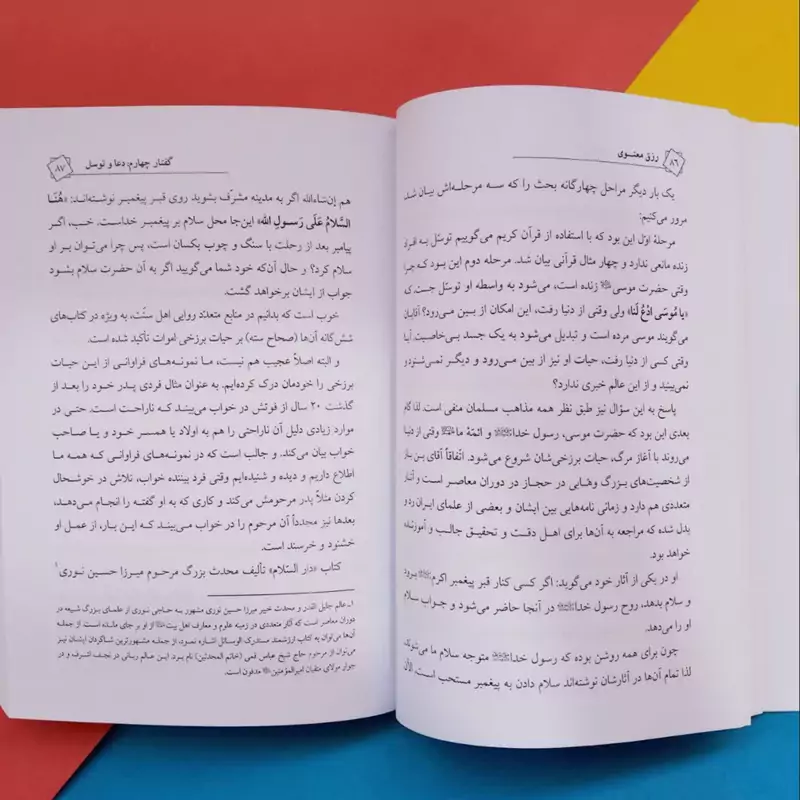 ۸۶ رزق معنـوی
یک بار دیگر مراحل چهارگانه بحث را که سـه مرحلـه‌اش بیـان شـد
مرور می‌کنیم:
مرحلهٔ اوّل این بود که با استفاده از قرآن کریم می‌گوییم توسّل به افـراد
زنده مانعی ندارد و چهار مثال قرآنی بیان شد. مرحله دوم این بـود کـه چـرا
وقتی حضرت موسی زنده است، می‌شود به واسطه او توسّل جست کـه
«یا مُوسَی ادْعُ لَنا» ولی وقتی از دنیا رفت، این امکان از بین می‌رود؟ آقایان
می‌گویند موسی مرده است و تبدیل می‌شود به یک جسد بی‌خاصیت. آیـا
وقتی کسی از دنیا رفت، حیات او نیز از بین مـی‌رود و دیگـر نمی‌شـنود و
نمی‌بیند و از این عالم خبری ندارد؟
پاسخ به این سؤال نیز طبق نظر همه مذاهب مسلمان منفی است. لذا گام
بعدی این بود که حضرت موسی، رسول خدا و ائمّهٔ ما وقتی از دنیا
می‌روند با آغاز مرگ، حیات برزخی‌شان شروع می‌شود. اتفّاقاً آقای بن بـاز
از شخصیت‌های بزرگ وهابی در حجاز در دوران معاصر است و آثـار
متعددی هم دارد و زمانی نامه‌هایی بین ایشان و بعضی از علمای ایران رد و
بدل شده که مراجعه به آن‌ها برای اهل دقت و تحقیق جالب و آموزنـده
خواهد بود.
او در یکی از آثار خود می‌گوید: اگر کسی کنار قبر پیغمبر اکرم بـرود
و سلام بدهد، روح رسول خدا در آنجا حاضر می‌شود و جـواب سـلام
او را می‌دهد.
چون برای همه روشن بوده که رسول خدا متوجه سلام ما می‌شوند
لذا تمام آن‌ها در آثارشان نوشته‌اند سلام دادن به پیغمبر مستحب است. الآن
گفتار چهارم: دعا و توسل ۸۷
هم إن‌شاءالله اگر به مدینه مشرّف بشوید روی قبـر پیغمبـر نوشته‌انـد: «هُنَـا
السَّلامُ عَلَی رَسـولِ الله» این‌جا محل سلام بر پیغمبـر خداسـت. خـب، اگـر
پیامبر بعد از رحلت با سنگ و چوب یکسان است، پس چرا می‌توان بر او
سلام کرد؟ و حال آن‌که خود شما می‌گویید اگر به آن حضرت سلام بشود
جواب از ایشان برخواهد گشت.
خوب است که بدانیم در منابع متعدّد روایی اهل سنّت، به ویژه در کتاب‌های
شش‌گانه آن‌ها (صحاح سته) بر حیات برزخی اموات تأکید شده است.
و البته اصلاً عجیب هم نیست، ما نمونـه‌هـای فراوانـی از ایـن حیـات
برزخی را خودمان درک کرده‌ایم. به عنوان مثال فردی پـدر خـود را بعـد از
گذشت ۲۰ سال از فوتش در خواب می‌بینـد کـه ناراحـت اسـت. حتـی در
موارد زیادی دلیل آن ناراحتی را هم به اولاد یا همسـر خـود و یـا صـاحب
خواب بیان می‌کند. و جالب است که در نمونـه‌هـای فراوانـی کـه همـه مـا
اطلاع داریم و دیده و شنیده‌ایم وقتی فرد بیننده خواب، تلاش در خوشحال
کردن مثلاً پدر مرحومش می‌کند و کاری که به او گفته را انجام می‌دهـد،
بعدها نیز مجدداً آن مرحوم را در خواب می‌بینـد کـه ایـن بـار، از عمـل او
خشنود و خرسند است.
کتاب «دار السّلام» تألیف محدث بزرگ مرحـوم میـرزا حسـین نـوری۱
۱ـ عالم جلیل القدر و محدث خبیر میرزا حسین نوری مشهور بـه حـاجی نـوری از علمـای بـزرگ شـیعه در
دوران معاصر است که آثار متعددی در زمینه علوم و معارف اهل بیت از او بر جای مانـده اسـت از جملـه
آن‌ها می‌توان به کتاب ارزشمند مستدرک الوسائل اشاره نمود. از جملـه مشـهورترین شـاگردان ایشـان نیـز
می‌توان از مرحوم حاج شیخ عباس قمی (خاتم المحدثین) نام بـرد ایـن عـالم ربـانی در نجـف اشـرف و در
جوار مولای متقیان امیرالمؤمنین مدفون است.